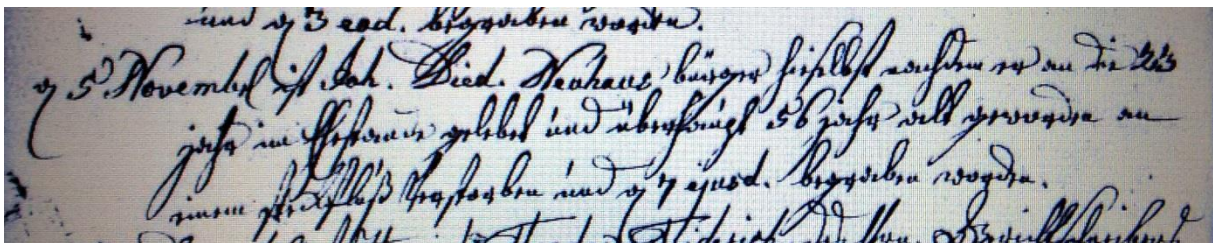 und d 3 eod. begraben worden.
d 5 November ist Joh. Died. Neuhaus bürger hieselbst nachdem er an die 23
jahr im Ehestande gelebet und überhaupt 56 jahr alt geworden an
einem Steckfluß verstorben und d 7 ejusd. begraben worden.